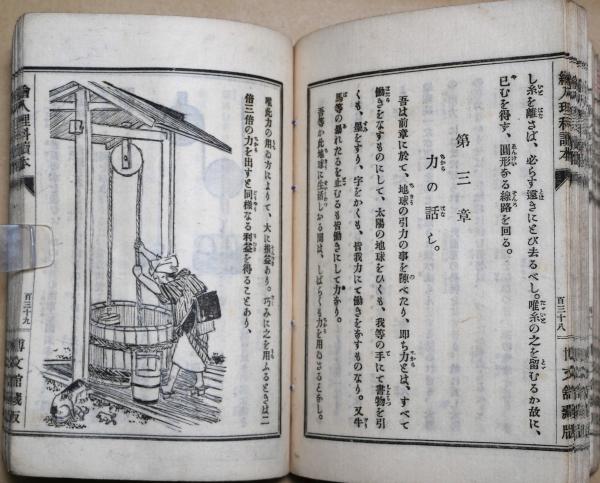 繪入理科讀本
し糸を離さば、必らず遠きにとび去るべし。唯糸の之を留むるか故に、
已むを得ず、圓形なる線路を回る。
第三章
力の話し。
吾は前章に於て、地球の引力の事を陳べたり、即ち力とは、すべて
働きをなすものにして、太陽の地球をひくも、我等の手にて書物を引
くも、墨をすり、字をかくも、皆我力にて働きをなすものなり。又牛
馬等の暴れたるを止むるも皆働きにして力なり。
吾等か此地球に生活しかる間は、しばらくも力を用ゐざるとかし。
百三十八
博文館藏版
唯此力の用ゐ方によりて、大に損益あり。巧みに之を用ふるときは二
倍三倍の力を出すと同様なる利益を得ることあり、
繪入理科讀本
百三十九
博文館藏版